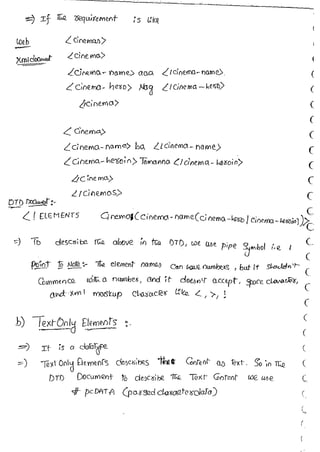 => If the requirement is like
Web <cinemas>
Xml document <cinema>
<cinema-name> aaa </cinema-name>
<cinema-hero> Nag </cinema-hero>
</cinema>
<cinema>
<cinema-name> ba </cinema-name>
<cinema-heroin> Tamanna </cinema-heroin>
</cinema>
</cinemas>
DTD Document :-
<! ELEMENTS Cinema(cinema-name(cinema-hero | cinema-heroin))>
=) To describe the above in the DTD, we use pipe symbol i.e |
Point To Note :- The element names can have numbers, but it shouldn't
commence with a number, and it doesn't accept, space character,
and xml markup character like <, >, !
b) Text Only Elements :-
=> It is a datatype
=) Text Only Elements describes the content as text. So in the
DTD Document to describe the Text content we use
# pcDATA (parsed character data)